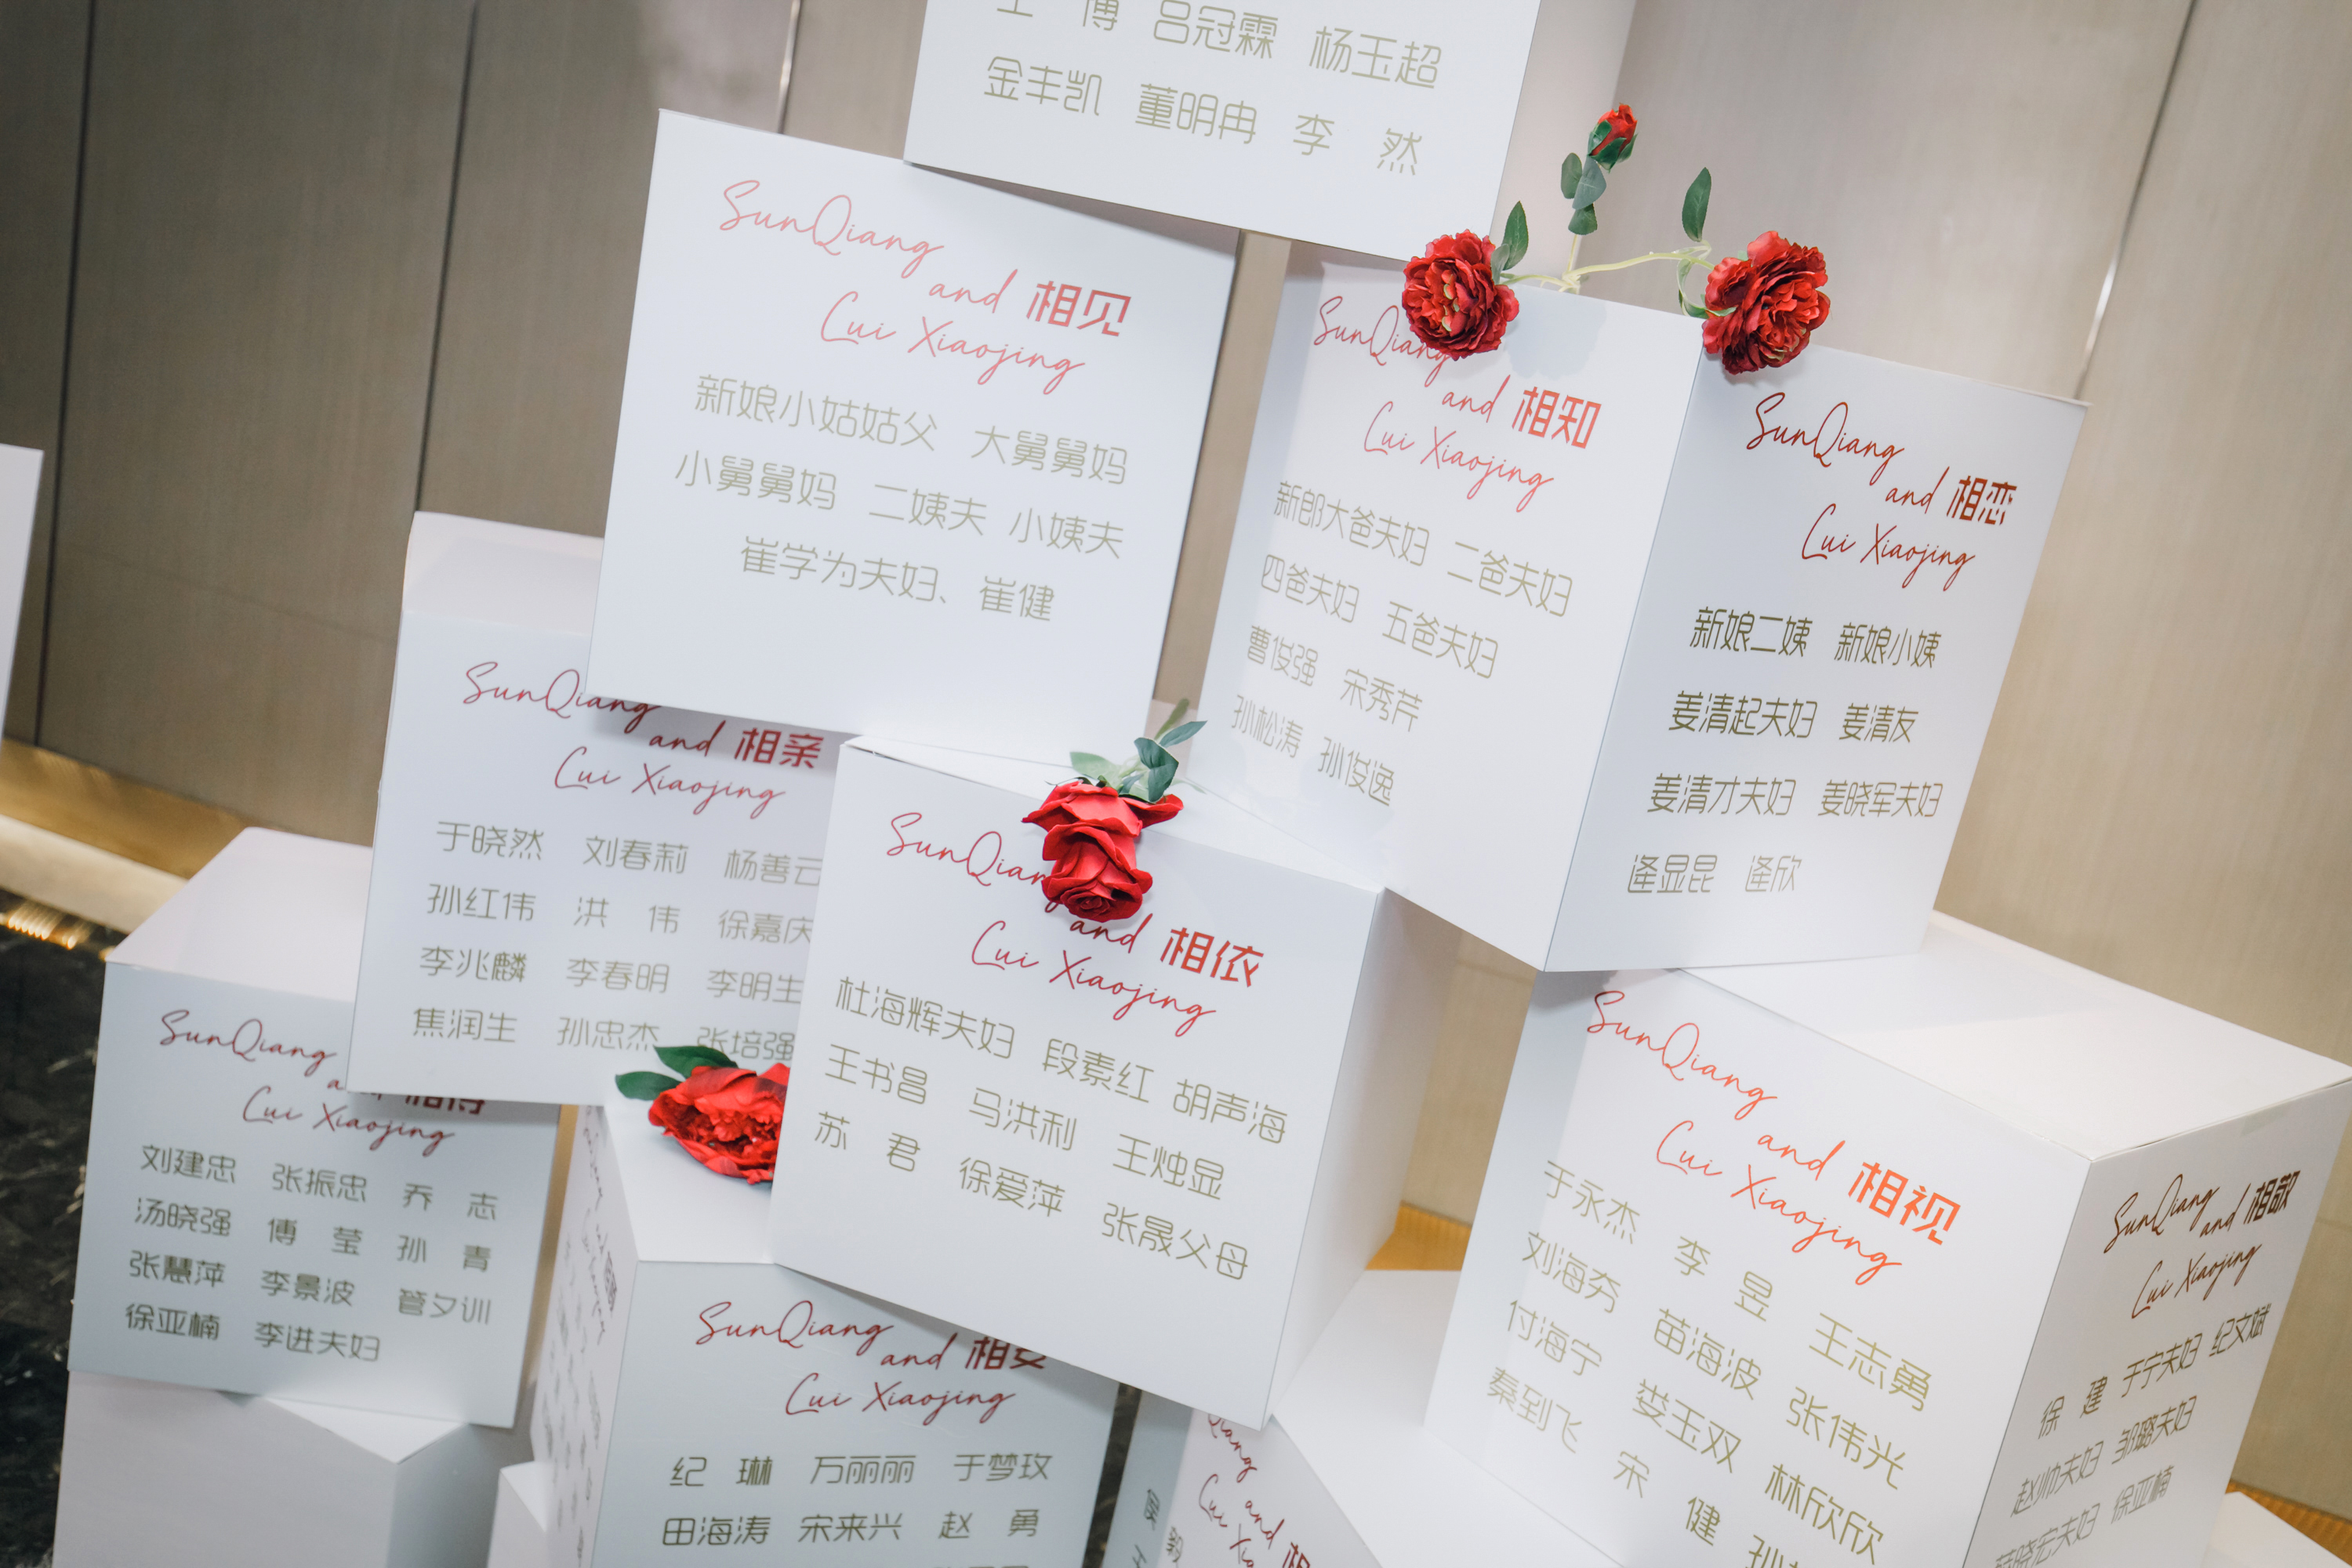 博 吕冠霖 杨玉超
金丰凯 董明冉 李 然
SunQiang
and 相见
Cui Xiaojing
新娘小姑姑父 大舅舅妈
小舅舅妈 二姨夫 小姨夫
崔学为夫妇、崔健
SunQiang
and 相知
Cui Xiaojing
新郎大爸夫妇 二爸夫妇
四爸夫妇 五爸夫妇
曹俊强 宋秀芹
孙松涛 孙俊逸
SunQiang
and 相恋
Cui Xiaojing
新娘二姨 新娘小姨
姜清起夫妇 姜清友
姜清才夫妇 姜晓军夫妇
逄显昆 逄欣
SunQiang
and 相亲
Cui Xiaojing
于晓然 刘春莉 杨善云
孙红伟 洪 伟 徐嘉庆
李兆麟 李春明 李明生
焦润生 孙忠杰 张培强
SunQiang
and 相依
Cui Xiaojing
杜海辉夫妇 段素红 胡声海
王书昌 马洪利 王烛显
苏 君 徐爱萍 张晟父母
SunQiang
Cui Xiaojing
刘建忠 张振忠 乔 志
汤晓强 傅 莹 孙 青
张慧萍 李景波 管夕训
徐亚楠 李进夫妇
SunQiang
and 相爱
Cui Xiaojing
纪 琳 万丽丽 于梦玫
田海涛 宋来兴 赵 勇
SunQiang
and 相视
Cui Xiaojing
于永杰 李 昱 王志勇
刘海夯 苗海波 张伟光
付海宁 娄玉双 林欣欣
秦到飞 宋 健
SunQiang
and 相敬
Cui Xiaojing
徐 建 于宁夫妇 纪文斌
赵帅夫妇 邹璐夫妇
晓宏夫妇 徐亚楠
Qiang
and
Cui